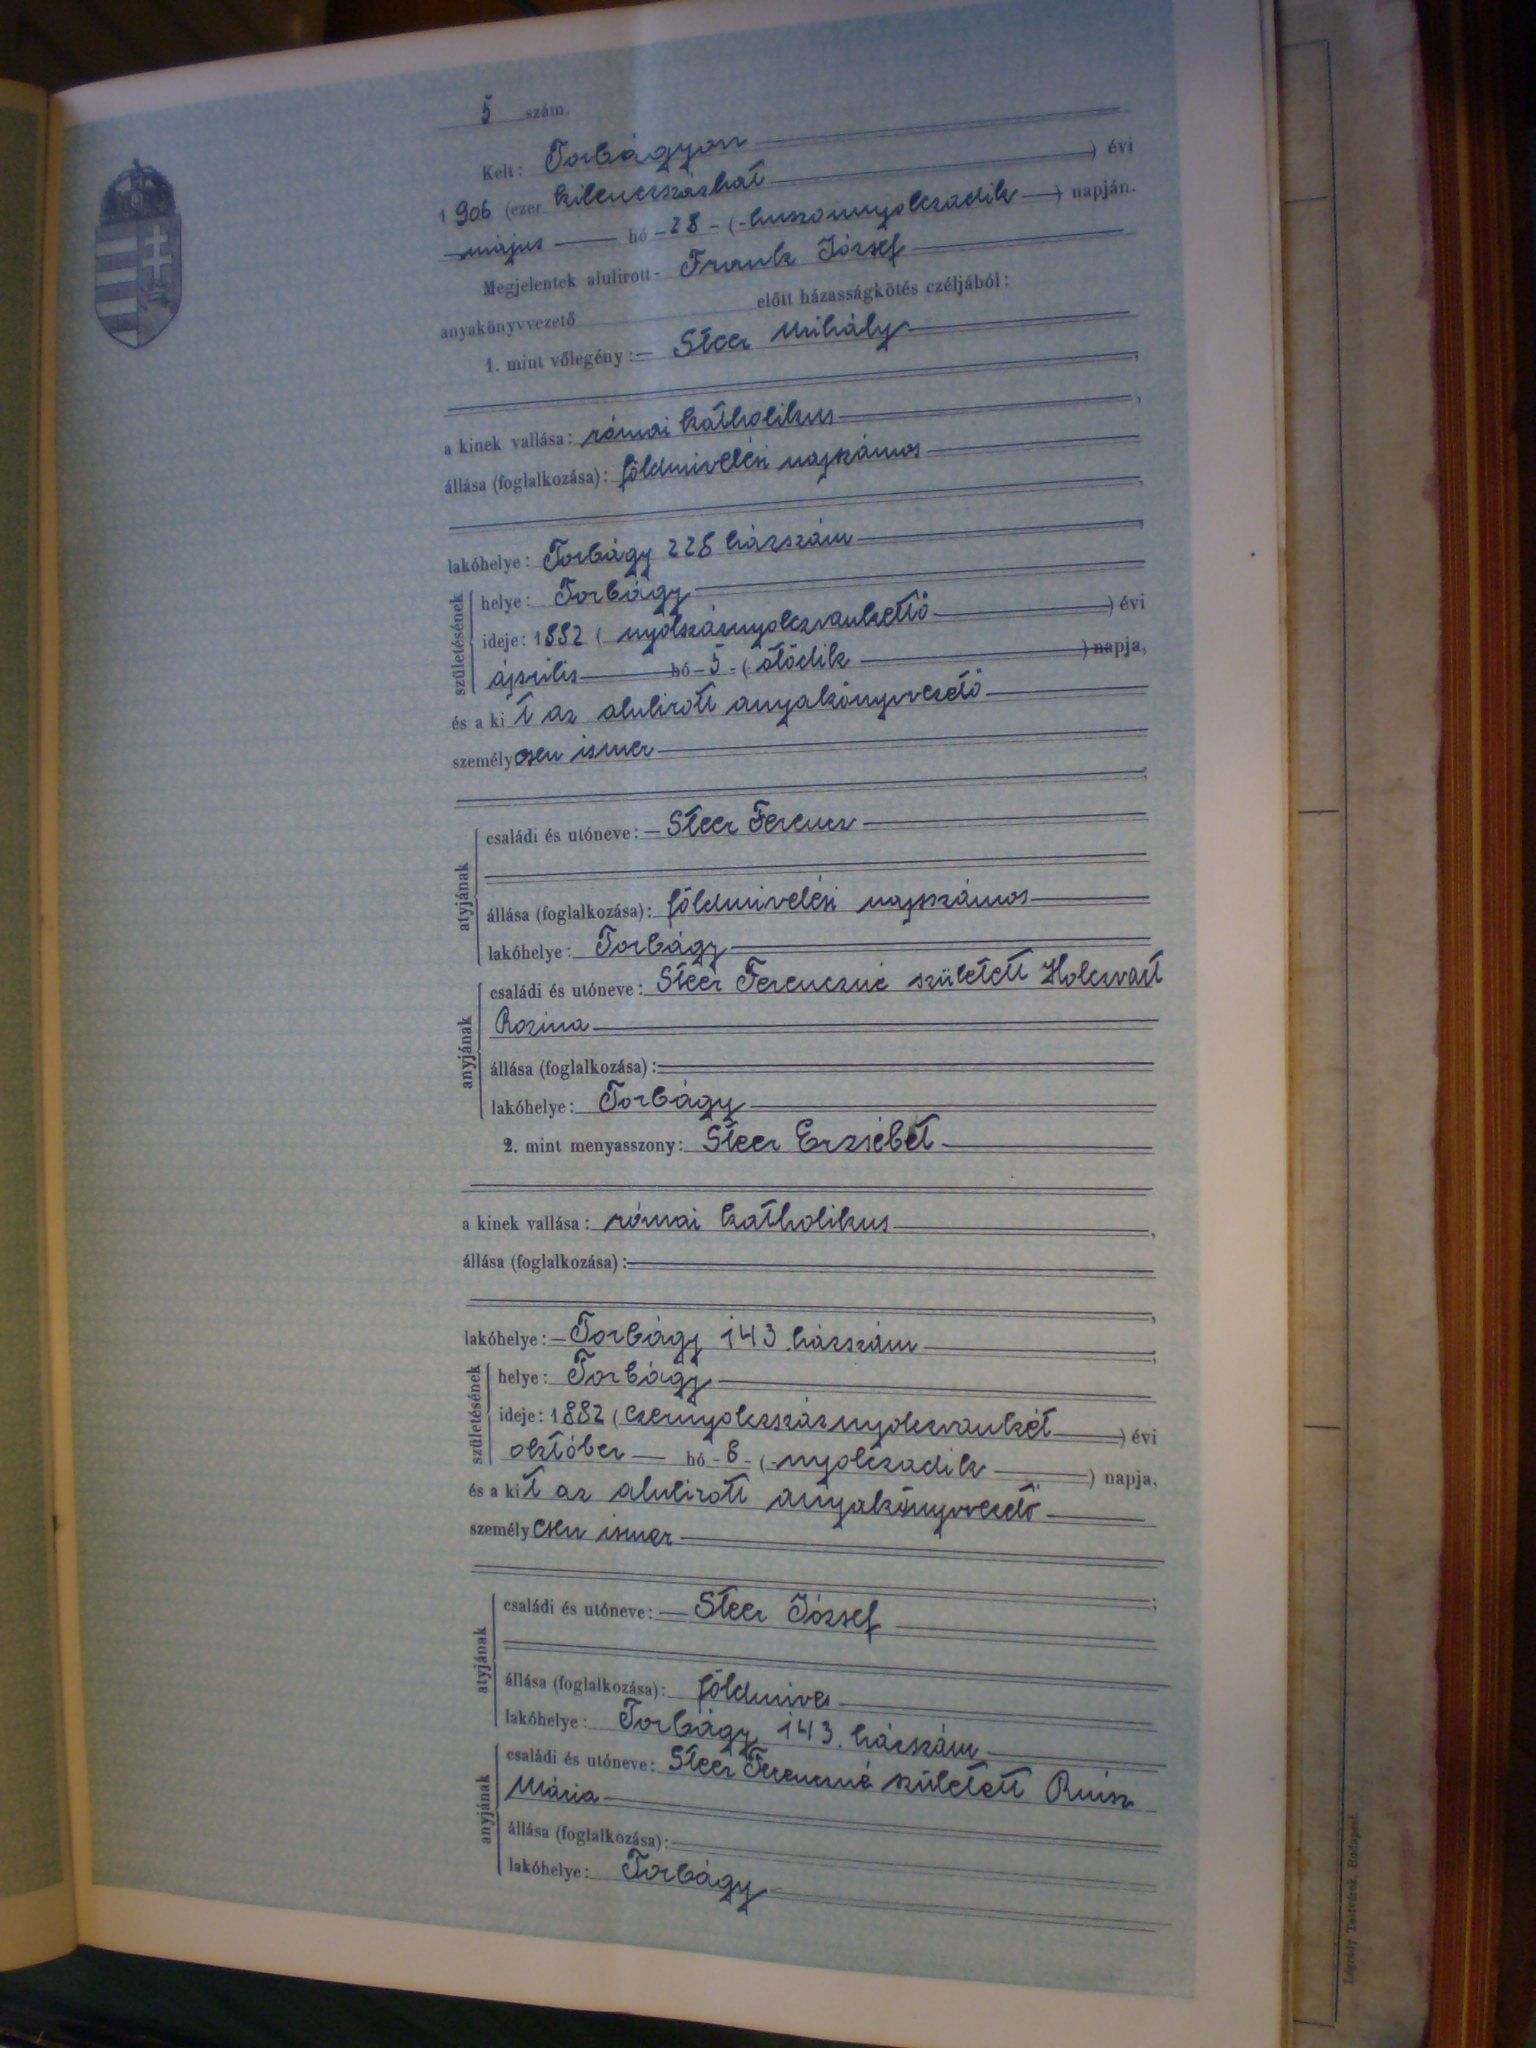 5 szám.
Kelt: Torbágyon
1906 (ezer kilenczszázhat) évi
május hó 28 - (-huszonnyolczadik) napján.
Megjelentek alulirott - Frank József
anyakönyvvezető előtt házasságkötés czéljából:
1. mint vőlegény: Steer Mihály,
a kinek vallása: római katholikus,
állása (foglalkozása): földmivelési napszámos,
lakóhelye: Torbágy 228 házszám,
születésének
helye: Torbágy
ideje: 1882 (nyolczáznyolczvankettő) évi
április hó - 5 - (ötödik) napja,
és a kit az alulirott anyakönyvvezető
személyesen ismer
;
atyjának
családi és utóneve: Steer Ferencz
állása (foglalkozása): földmivelési napszámos
lakóhelye: Torbágy
anyjának
családi és utóneve: Steer Ferenczné született Holczvart
Rozina
állása (foglalkozása):
lakóhelye: Torbágy
2. mint menyasszony: Steer Erzsébet
a kinek vallása: római katholikus,
állása (foglalkozása):
,
lakóhelye: Torbágy 143 házszám;
születésének
helye: Torbágy
ideje: 1882 (ezernyolczszáznyolczvankét) évi
október hó - 8 - (-nyolczadik) napja,
és a kit az alulirott anyakönyvvezető
személyesen ismer
;
atyjának
családi és utóneve: Steer József
állása (foglalkozása): földmives
lakóhelye: Torbágy 143. házszám
anyjának
családi és utóneve: Steer Ferenczné született
Mária
állása (foglalkozása):
lakóhelye: Torbágy
Légrády Testvérek, Budapest.